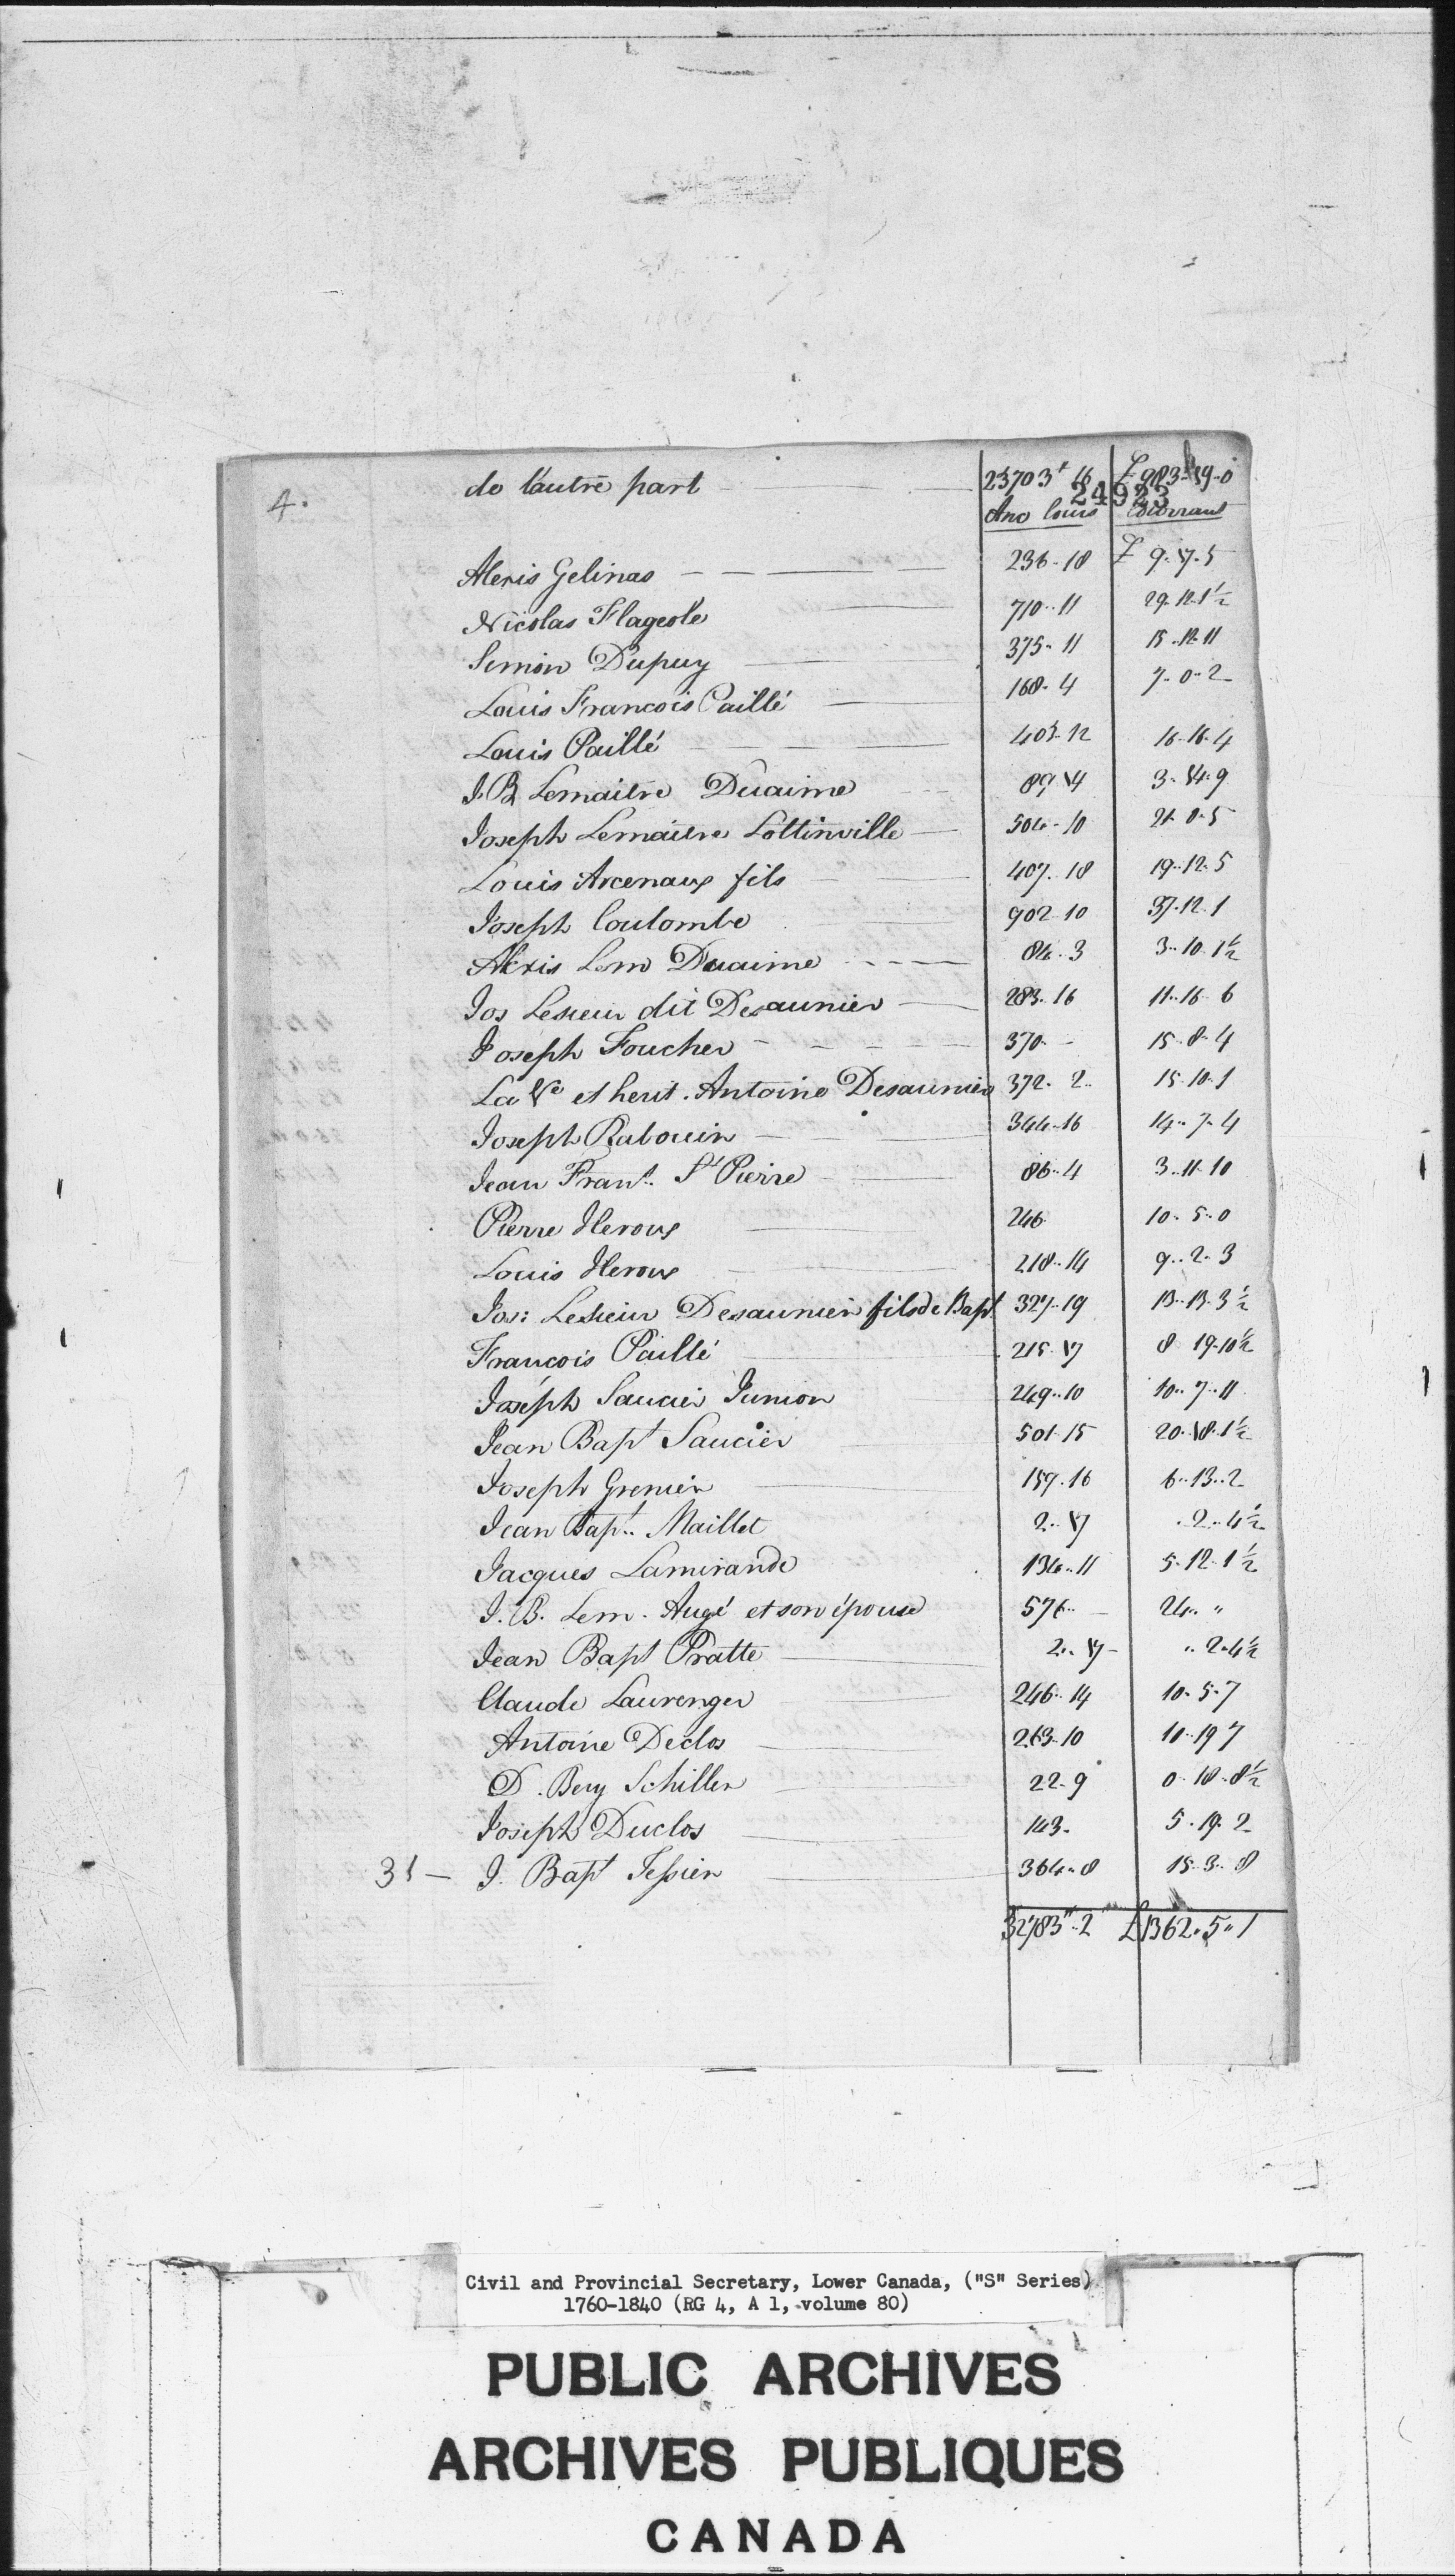 4. de l'autre part 23703# 16 £ 983-19-0
24923
Anc cours Courant
Alexis Gelinas 236-18 £ 9.17.5
Nicolas Flageole 710..11 29.12.1½
Semion Dupuy 375-11 15-12-11
Louis Francois Paillé 168-4 7-0-2
Louis Paillé 403-12 16-16-4
J.B Lemaitre Duaime 89-14 3-14-9
Joseph Lemaitre Lottinville 504-10 21-0-5
Louis Arcenaux fils 407-18 19-12-5
Joseph Coulombe 902-10 37-12-1
Alexis Lem Duaime 84-3 3-10-1½
Jos Lesieur dit Desaunier 283-16 11-16-6
Joseph Foucher 370- - 15-8-4
La Ve et herit. Antoine Desaunier 372-2.. 15-10-1
Joseph Rabouin 344-16 14-7-4
Jean Frant. St Pierre 86-4 3-11-10
Pierre Heroux 246 10-5-0
Louis Heroux 218-14 9-2-3
Jos: Lesieur Desaunier fils de Bapt 327-19 13-13-3½
François Paillé 215-17 8 19-10½
Joseph Saucier Junior 249-10 10-7-11
Jean Bapt Saucier 501-15 20-18-1½
Joseph Grenier 159-16 6-13-2
Jean Bapt.. Maillet 2-17 .2-4½
Jacques Lamirande 134-11 5-12-1½
J. B. Lem. Augé et son épouse 576- - 24.. "
Jean Bapt Pratte 2-17- .. 2-4½
Claude Laurenger 246-14 10-5-7
Antoine Declos 263-10 10-19 7
D. Beny Schiller 22-9 0-18-8½
Joseph Duclos 143- 5-19-2
31 - J. Bapt Tessier 364-8 15-3-8
32783"-2 £1362"5"1
Civil and Provincial Secretary, Lower Canada, ("S" Series)
1760-1840 (RG 4, A 1, volume 80)
PUBLIC ARCHIVES
ARCHIVES PUBLIQUES
CANADA